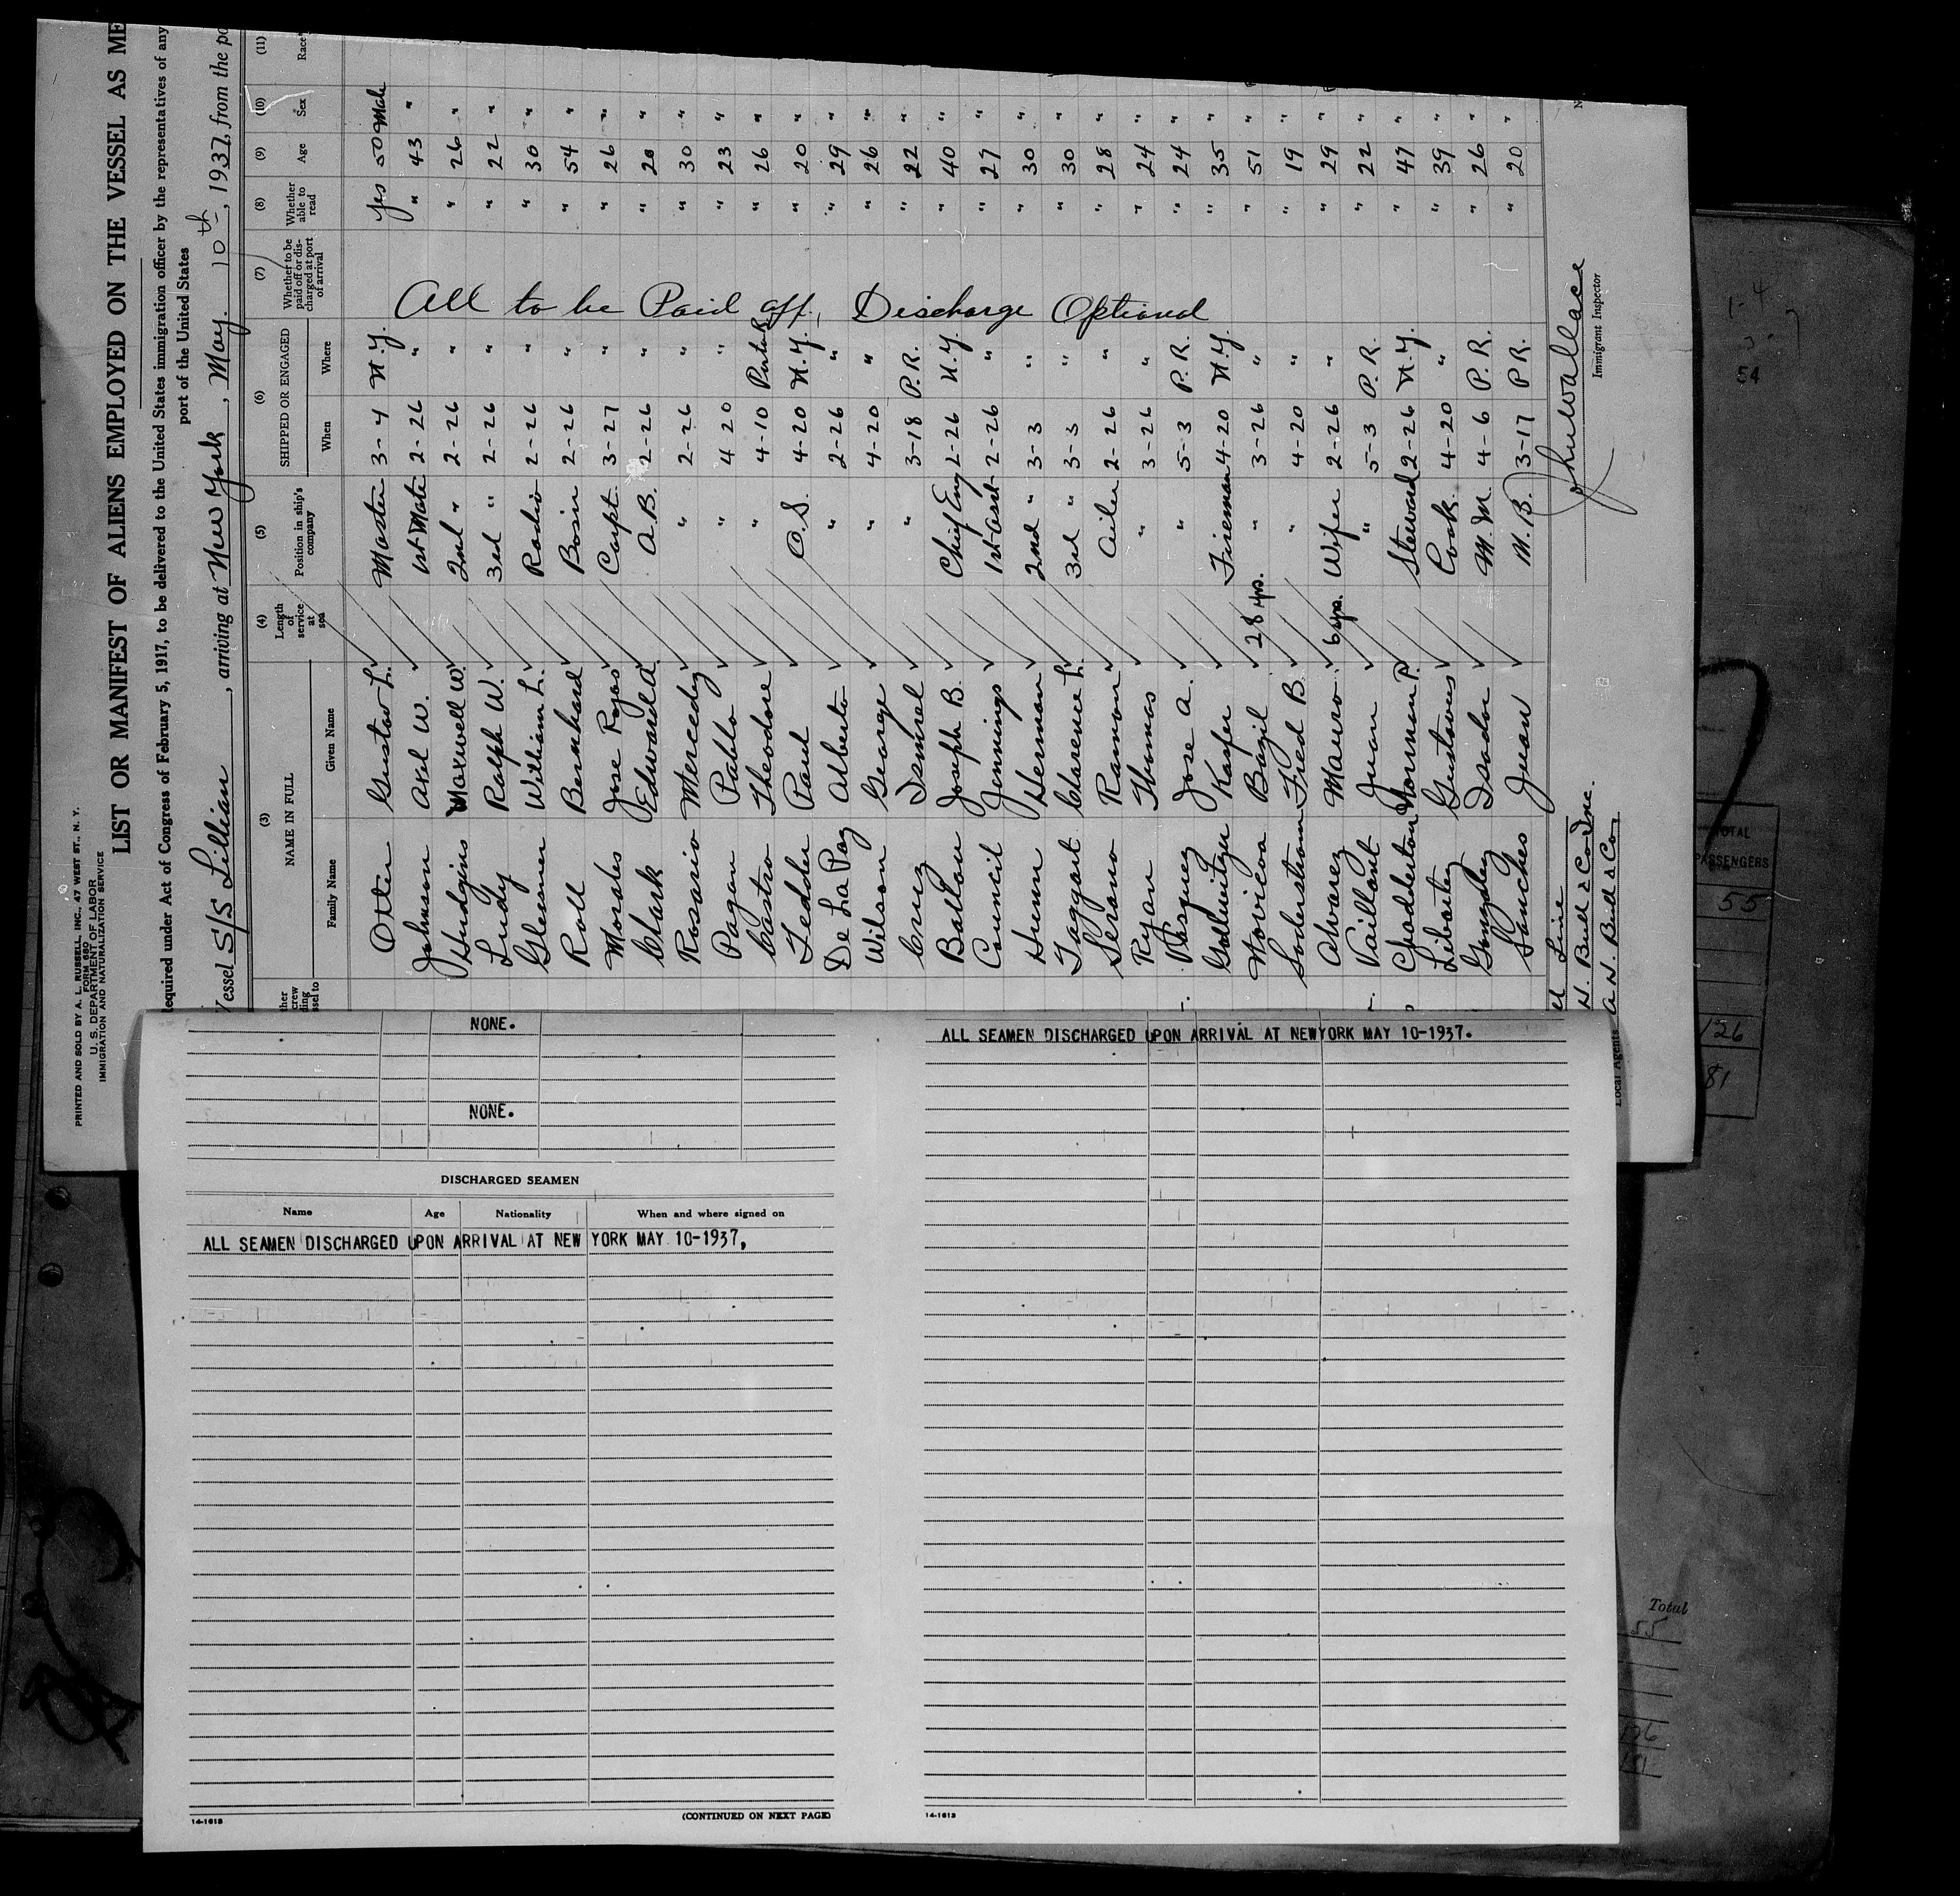 PRINTED AND SOLD BY A. L. RUSSELL, INC., 47 WEST ST., N. Y.
FORM 680
U. S. DEPARTMENT OF LABOR
IMMIGRATION AND NATURALIZATION SERVICE
LIST OR MANIFEST OF ALIENS EMPLOYED ON THE VESSEL AS ME
Required under Act of Congress of February 5, 1917, to be delivered to the United States immigration officer by the representatives of any
port of the United States
Vessel S/S Lillian, arriving at New York, May. 10th, 1937, from the po
(3) (4) (5) (6) (7) (8) (9) (10) (11)
NAME IN FULL Length of service at sea Position in ship's company SHIPPED OR ENGAGED Whether to be paid off or discharged at port of arrival Whether able to read Age Sex Race
Family Name Given Name When Where
All to be Paid off, Discharge Optional
Otten Gustav L. Master 3-4 N.Y. yes 50 Male
Johnson Axel W. 1st Mate 2-26 " " 43 "
Hudgins Maxwell W. 2nd " 2-26 " " 26 "
Ludy Ralph W. 3rd " 2-26 " " 22 "
Glesner William L. Radio 2-26 " " 30 "
Roll Bernhard Bosin 2-26 " " 54 "
Morales Jose Rojas Carpt. 3-27 " " 26 "
Clark Edward A. A.B. 2-26 " " 28 "
Rosario Mercedes " 2-26 " " 30 "
Pagan Pablo " 4 20 " " 23 "
Castro Theodore " 4-10 " 26 "
Tedder Paul O.S. 4-20 N.Y. " 20 "
De La Paz Alberto " 2-26 " " 29 "
Wilson George " 4-20 " " 26 "
Cruz Ismael " 3-18 P.R. " 22 "
Ballou Joseph B. Chief Eng 2-26 N.Y. " 40 "
Council Jennings 1st Asst 2-26 " " 27 "
Hunn Herman 2nd " 3-3 " " 30 "
Taggart Clarence L. 3rd " 3-3 " " 30 "
Serano Ramon Oiler 2-26 " " 28 "
Ryan Thomas " 3-26 " " 24 "
Vasquez Jose A. " 5-3 P.R. " 24 "
Gollwitzer Kasper Fireman 4-20 N.Y. " 35 "
Novicoa Bazil 28 yrs. " 3-26 " " 51 "
Soderstrom Fred B. " 4-20 " " 19 "
Alvarez Mauro 6 yrs. Wiper 2-26 " " 29 "
Vaillant Juan " 5-3 P.R. " 22 "
Chadderton Norman P. Steward 2-26 N.Y. " 47 "
Libartey Gustavus Cook 4-20 " " 39 "
Gonzalez Isador M.M. 4-6 P.R. " 26 "
Sanches Juan M.B. 3-17 P R. " 20 "
Line
H. Bull & Co Inc.
A.H. Bull & Co.
Local Agents
Jhu Wallace
Immigrant Inspector
54
TOTAL
PASSENGERS
55
126
81
NONE.
NONE.
DISCHARGED SEAMEN
Name Age Nationality When and where signed on
ALL SEAMEN DISCHARGED UPON ARRIVAL AT NEW YORK MAY 10-1937,
14-1613 (CONTINUED ON NEXT PAGE)
ALL SEAMEN DISCHARGED UPON ARRIVAL AT NEWYORK MAY 10-1937.
14-1613
Total
55
126
181